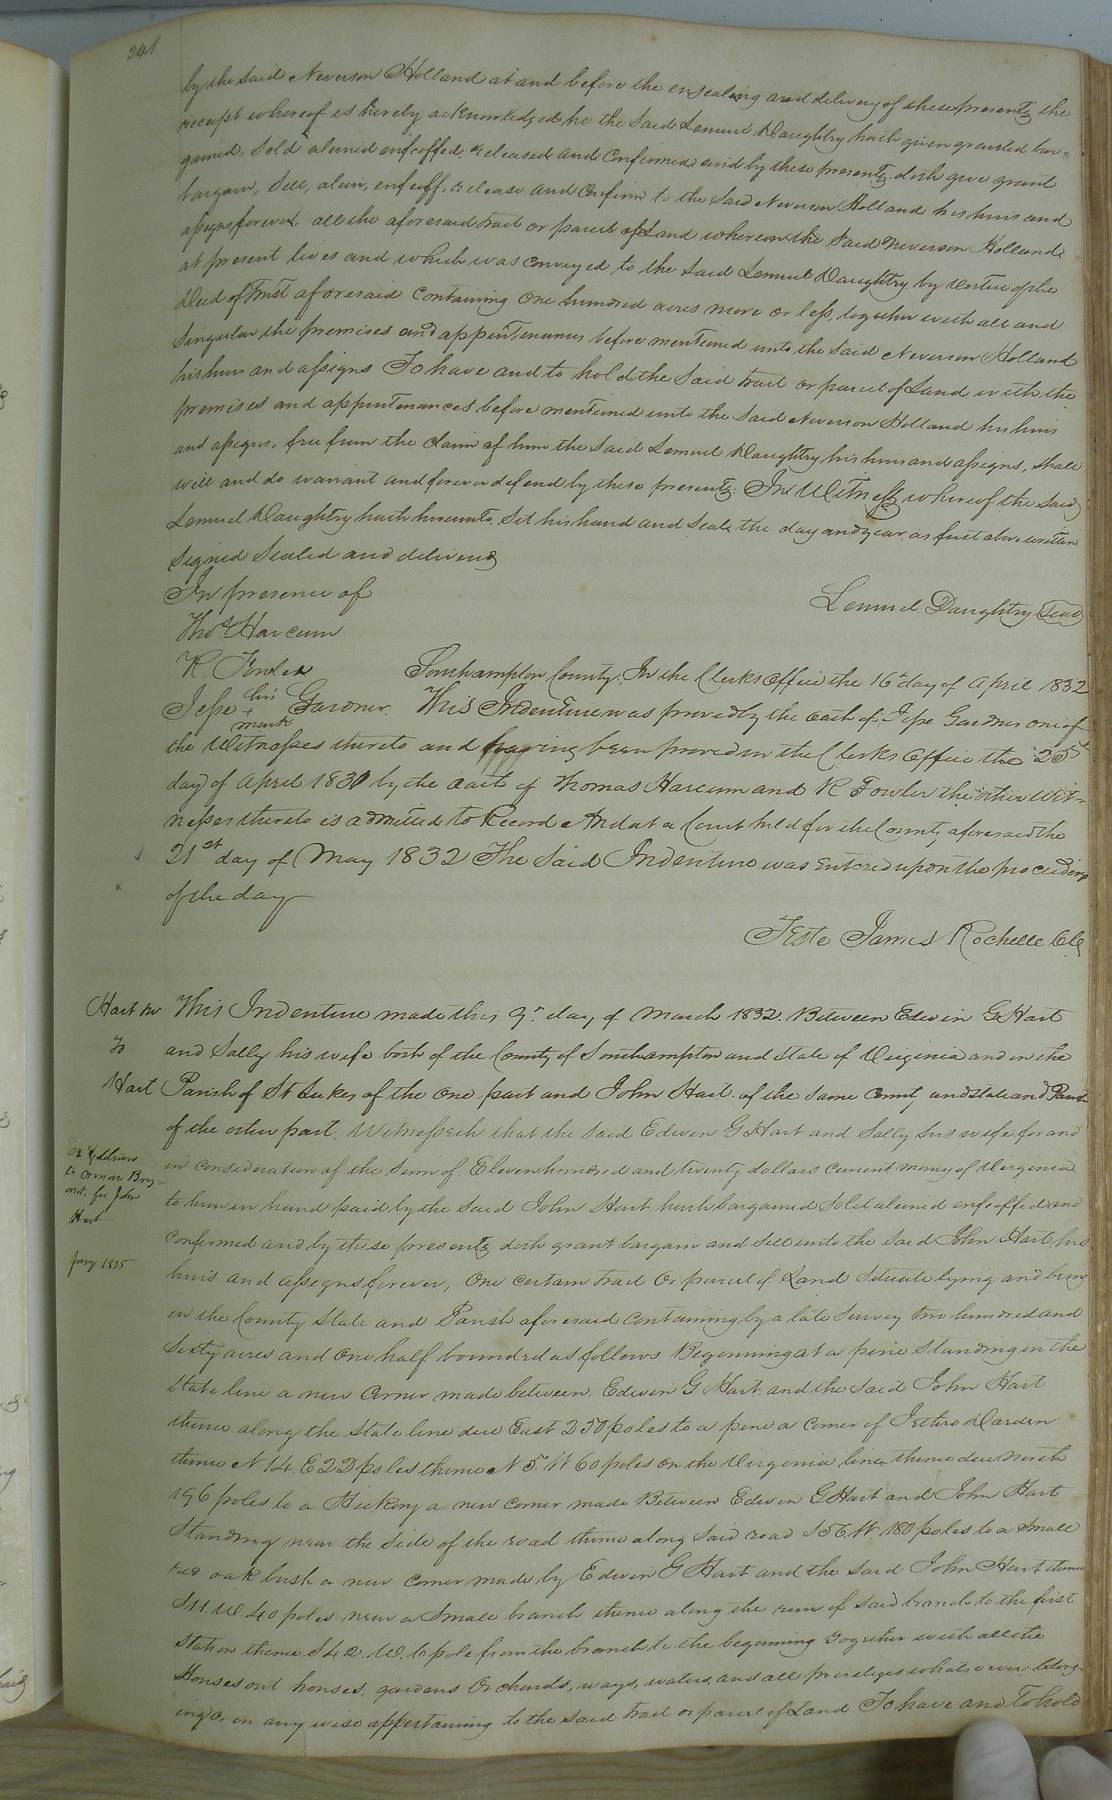 341
by the said Neverson Holland at and before the ensealing and delivery of these presents, the
receipt whereof is hereby acknowledged he the said Lemuel Daughtry hath given granted bar-
gained, Sold aliened enfeoffed, released and confirmed and by these presents doth give grant
bargain, Sell, alien, enfeoff, release and confirm to the said Neverson Holland his heirs and
assigns forever all the aforesaid tract or parcel of Land whereon the said Neverson Holland
at present lives and which was conveyed to the said Lemuel Daughtry by virtue of the
Deed of Trust aforesaid containing One hundred acres more or less, together with all and
Singular the premises and appurtenances before mentioned unto the said Neverson Holland
his heirs and assigns To have and to hold the said tract or parcel of Land with the
premises and appurtenances before mentioned unto the said Neverson Holland his heirs
and assigns, free from the claim of him the said Lemuel Daughtry his heirs and assigns, shall
will and do warrant and forever defend by these presents. In Witness whereof the said
Lemuel Daughtry hath hereunto Set his hand and Seal the day and year as first above written
Signed Sealed and delivered
In presence of
Lemuel Daughtry Seal
Thos Harcum
R. Fowler Southampton County. In the Clerks Office the 16th day of April 1832
Jesse his + mark Gardner. This Indenture was proved by the oath of Jesse Gardner one of
the Witnesses thereto and having been proved in the Clerks Office the 25th
day of April 1831 by the oath of Thomas Harcum and R Fowler the other wit-
nesses thereto is admitted to Record And at a Court held for the County aforesaid the
21st day of May 1832 The Said Indenture was entered upon the proceedings
of the day
Teste James Rochelle CC
Hart &c This Indenture made this 9th day of March 1832. Between Edwin G Hart
To and Sally his wife both of the County of Southampton and State of Virginia and in the
Hart Parish of St Lukes of the one part and John Hart of the same County and State and Parish
of the other part. Witnesseth that the said Edwin G Hart and Sally his wife for and
Ex & deliver
to Orman Bry-
ant for John
Hart
Jany 1835
in consideration of the sum of Eleven hundred and twenty dollars current money of Virginia
to him in hand paid by the said John Hart hath bargained Sold aliened enfeoffed and
Confirmed and by these presents doth grant bargain and Sell unto the said John Hart his
heirs and assigns forever, One certain tract or parcel of Land Situate lying and being
in the County State and Parish aforesaid containing by a late Survey two hundred and
Sixty acres and One half bounded as follows Beginning at a pine Standing in the
State line a new Corner made between Edwin G Hart and the said John Hart
thence along the State line due East 250 poles to a pine a corner of Jethro Darden
thence N 14. E 22 poles thence N 5. W 60 poles on the Virginia line thence due North
196 poles to a Hickory a new corner made Between Edwin G Hart and John Hart
Standing near the Side of the road thence along said road S 56 W. 180 poles to a small
red oak bush a new corner made by Edwin G Hart and the said John Hart thence
S 11. W. 40 poles near a Small branch thence along the run of said branch to the first
Station thence S 42. W. 6 pole from the branch to the beginning Together with all the
Houses out houses, gardens Orchards, ways, waters, and all privileges whatsoever belong-
ing or in any wise appertaining to the said tract or parcel of Land To have and To hold